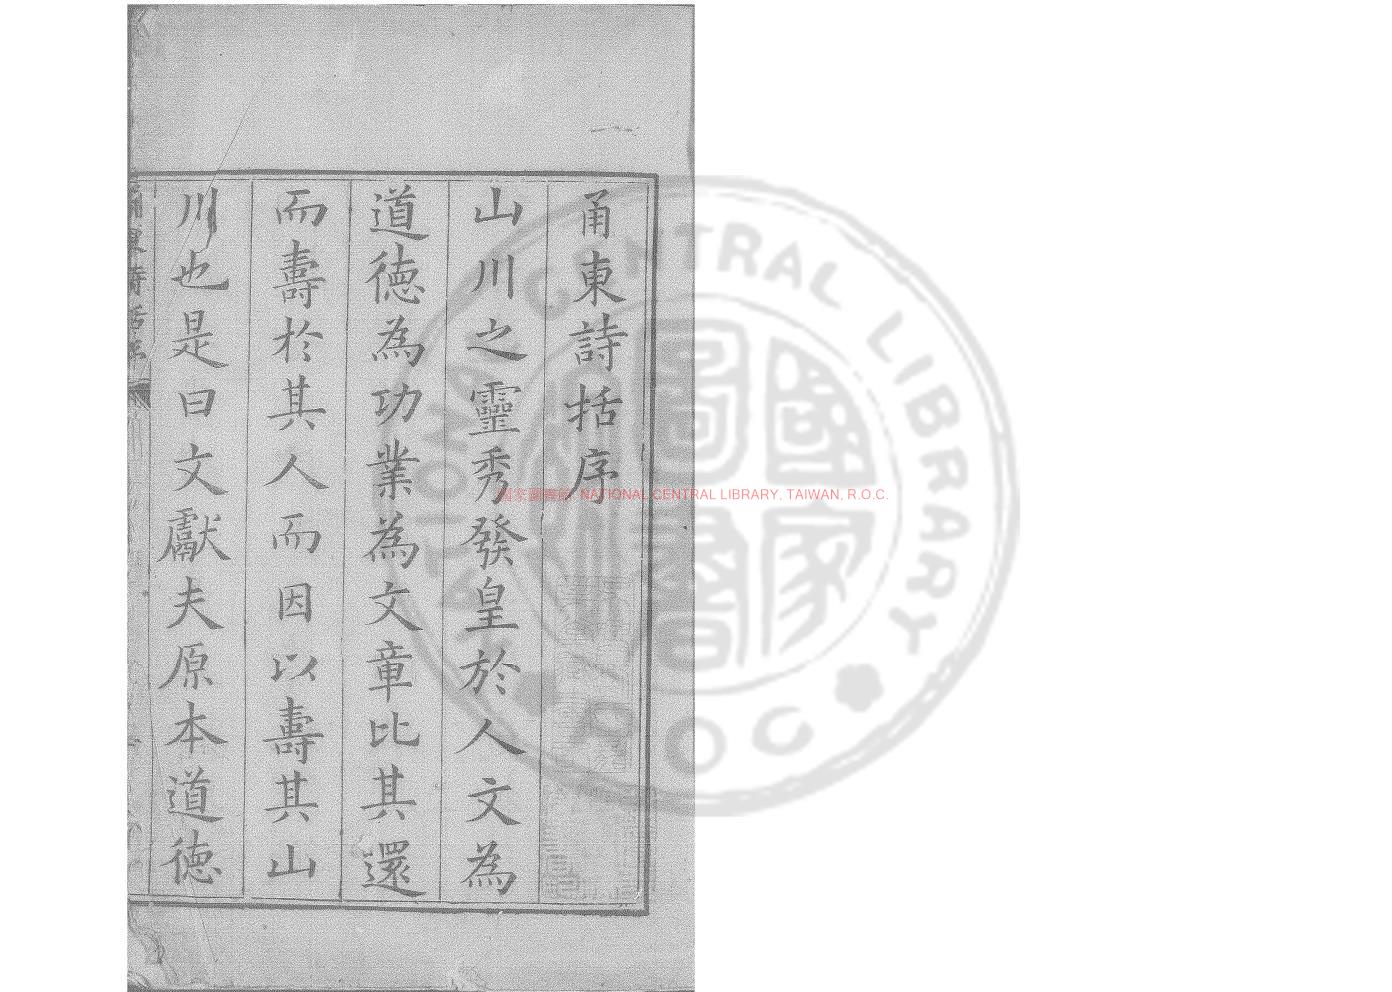 甬東詩括序
山川之靈秀發皇於人文為
道德為功業為文章比其還
而壽於其人而因以壽其山
川也是曰文獻夫原本道德
國家圖書館, NATIONAL CENTRAL LIBRARY, TAIWAN, R.O.C.
NATIONAL CENTRAL LIBRARY
ROC